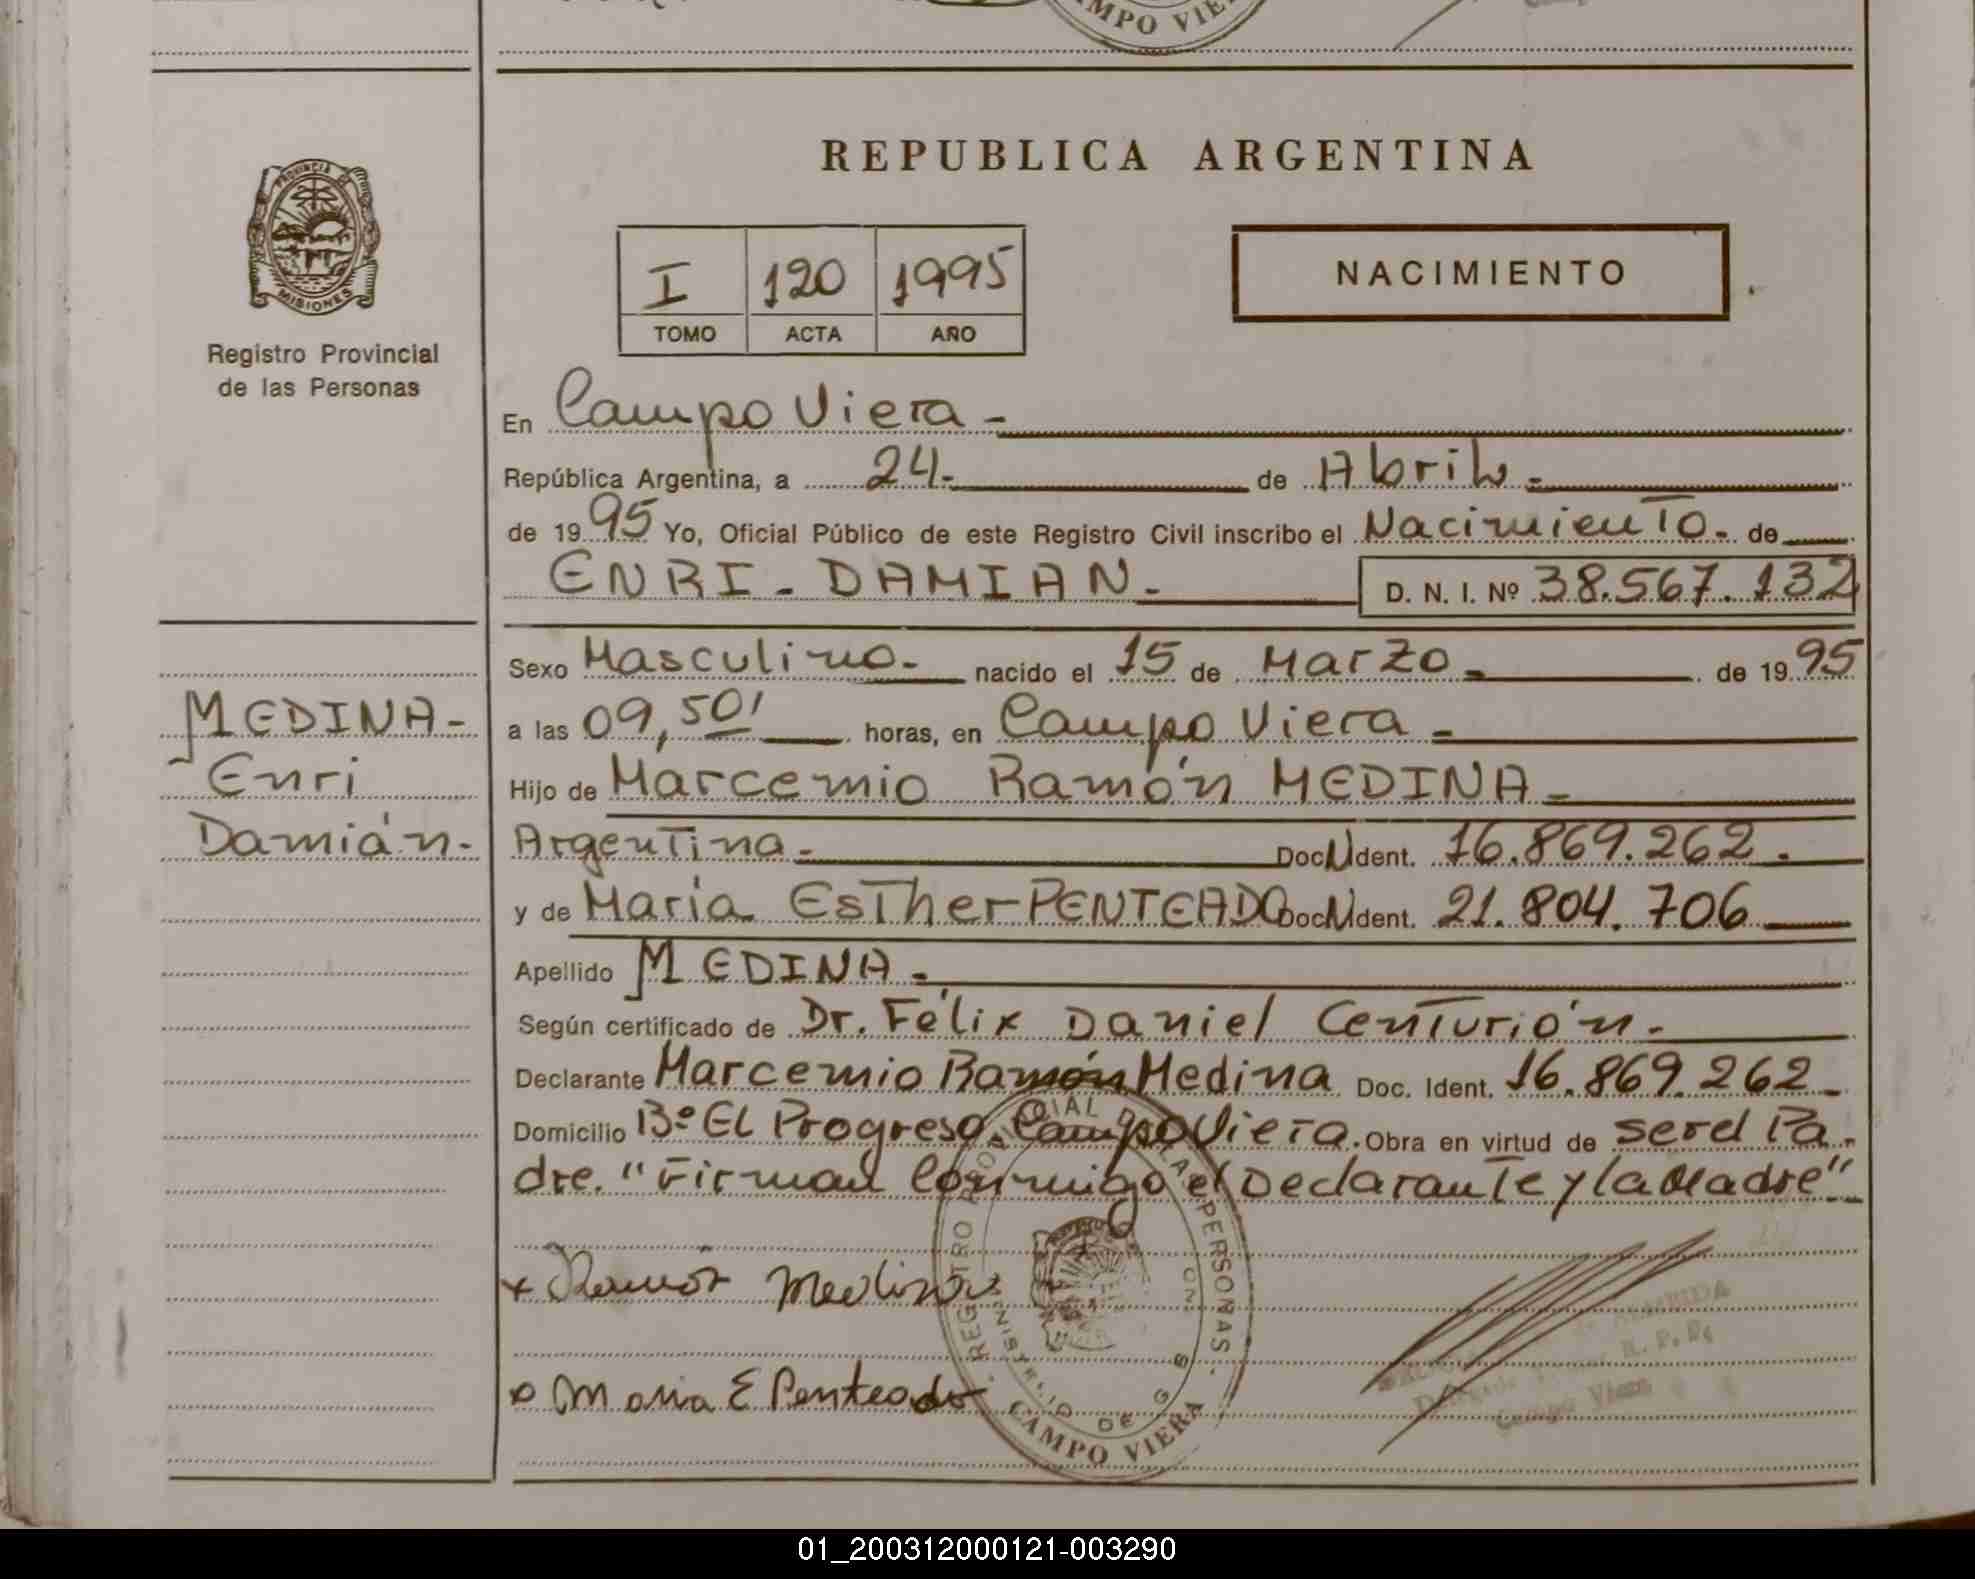 CAMPO VIERA
REPUBLICA ARGENTINA
PROVINCIA DE
MISIONES
Registro Provincial
de las Personas
I 120 1995
TOMO ACTA AÑO
NACIMIENTO
En Campo Viera -
República Argentina, a 24.- de Abril. -
de 1995 Yo, Oficial Público de este Registro Civil inscribo el Nacimiento. de
ENRI - DAMIAN. - D. N. I. Nº 38.567.132
Sexo Masculino. nacido el 15 de Marzo - de 1995
a las 09,50' horas, en Campo Viera -
Hijo de Marcemio Ramón MEDINA -
Argentina - Doc. Ident. 16.869.262.
y de María Esther PENTEADO Doc. Ident. 21.804.706
Apellido MEDINA -
Según certificado de Dr. Félix Daniel Centurión. -
Declarante Marcemio Ramón Medina Doc. Ident. 16.869.262 -
Domicilio Bº El Progreso. Campo Viera. Obra en virtud de ser el Pa-
dre. "Firman Conmigo el Declarante y la Madre"
MEDINA -
Enri
Damián. -
x Ramón Medina
x Maria E Penteado
REGISTRO PROVINCIAL DE LAS PERSONAS
CAMPO VIERA
Campo Viera
01_200312000121-003290